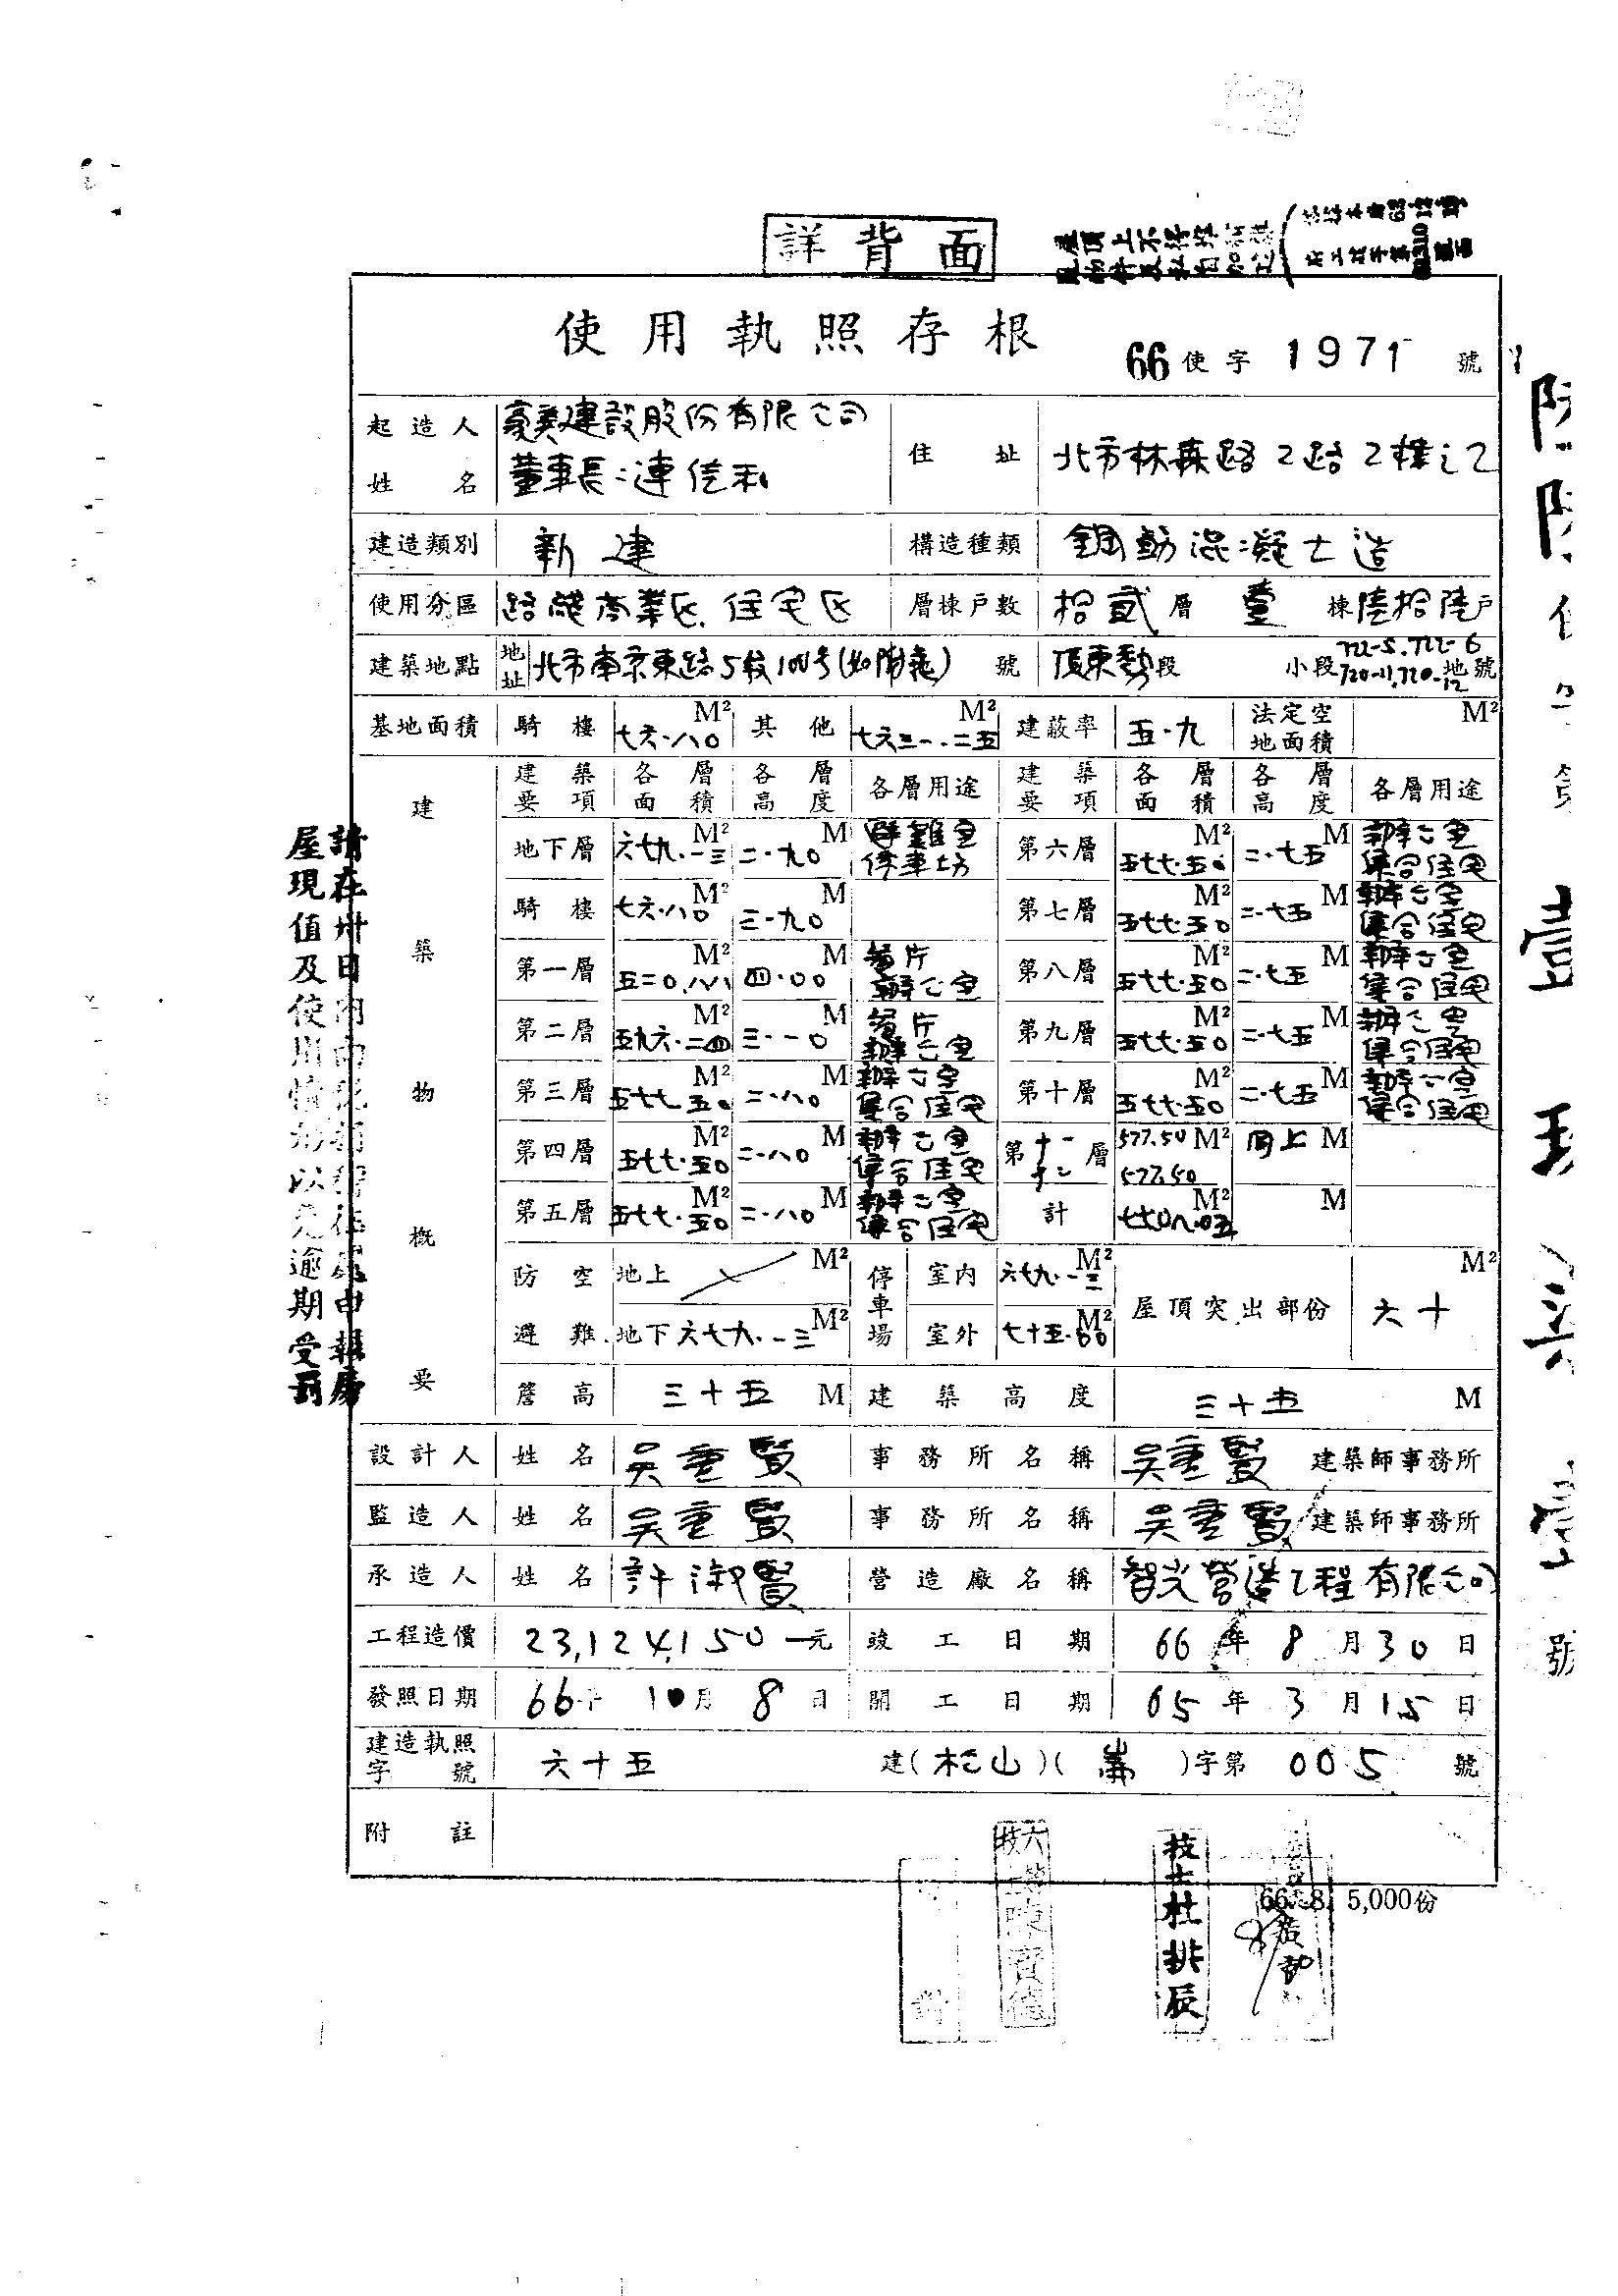 詳背面
使用執照存根
66使字1971號
起造人姓名 豪美建設股份有限公司
董事長:連信利
住址 北市林森路2路2樓之2
建造類別 新建 構造種類 鋼筋混凝土造
使用分區 路線商業区.住宅区 層棟戶數 拾貳層 壹棟 陸拾陸戶
建築地點 地址 北市南京東路5段 號 頂東勢段 小段 722-5.722-6 720-11,720-12 地號
基地面積 騎樓 七六.八〇M² 其他 七六三一.二五M² 建蔽率 五.九 法定空地面積 M²
建築物概要
建築要項 各層面積 各層高度 各層用途 建築要項 各層面積 各層高度 各層用途
地下層 六七九.一三M² 二.九〇M 避難室 停車坊 第六層 五七七.五〇M² 二.七五M 辦公室 集合住宅
騎樓 七六.八〇M² 三.九〇M 第七層 五七七.五〇M² 二.七五M 辦公室 集合住宅
第一層 五二〇.八八M² 四.〇〇M 餐厅 辦公室 第八層 五七七.五〇M² 二.七五M 辦公室 集合住宅
第二層 五九六.二四M² 三.一〇M 餐厅 辦公室 第九層 五七七.五〇M² 二.七五M 辦公室 集合住宅
第三層 五七七.五〇M² 二.八〇M 辦公室 集合住宅 第十層 五七七.五〇M² 二.七五M 辦公室 集合住宅
第四層 五七七.五〇M² 二.八〇M 辦公室 集合住宅 第十一 十二層 577.50M² 577.50 同上M
第五層 五七七.五〇M² 二.八〇M 辦公室 集合住宅 計 七七〇八.〇五M² M
防空避難 地上 M² 停車場 室內 六七九.一三M² 屋頂突出部份 六十M²
地下 六七九.一三M² 室外 七十五.00M²
簷高 三十五M 建築高度 三十五M
設計人 姓名 吳重賢 事務所名稱 吳重賢 建築師事務所
監造人 姓名 吳重賢 事務所名稱 吳重賢 建築師事務所
承造人 姓名 許淑賢 營造廠名稱 智光營造工程有限公司
工程造價 23,124,150元 竣工日期 66年8月30日
發照日期 66年10月8日 開工日期 65年3月15日
建造執照字號 六十五建(松山)( )字第005號
附註
66.8. 5,000份
技士杜排辰
屋現值及使用情形以免逾期受罰